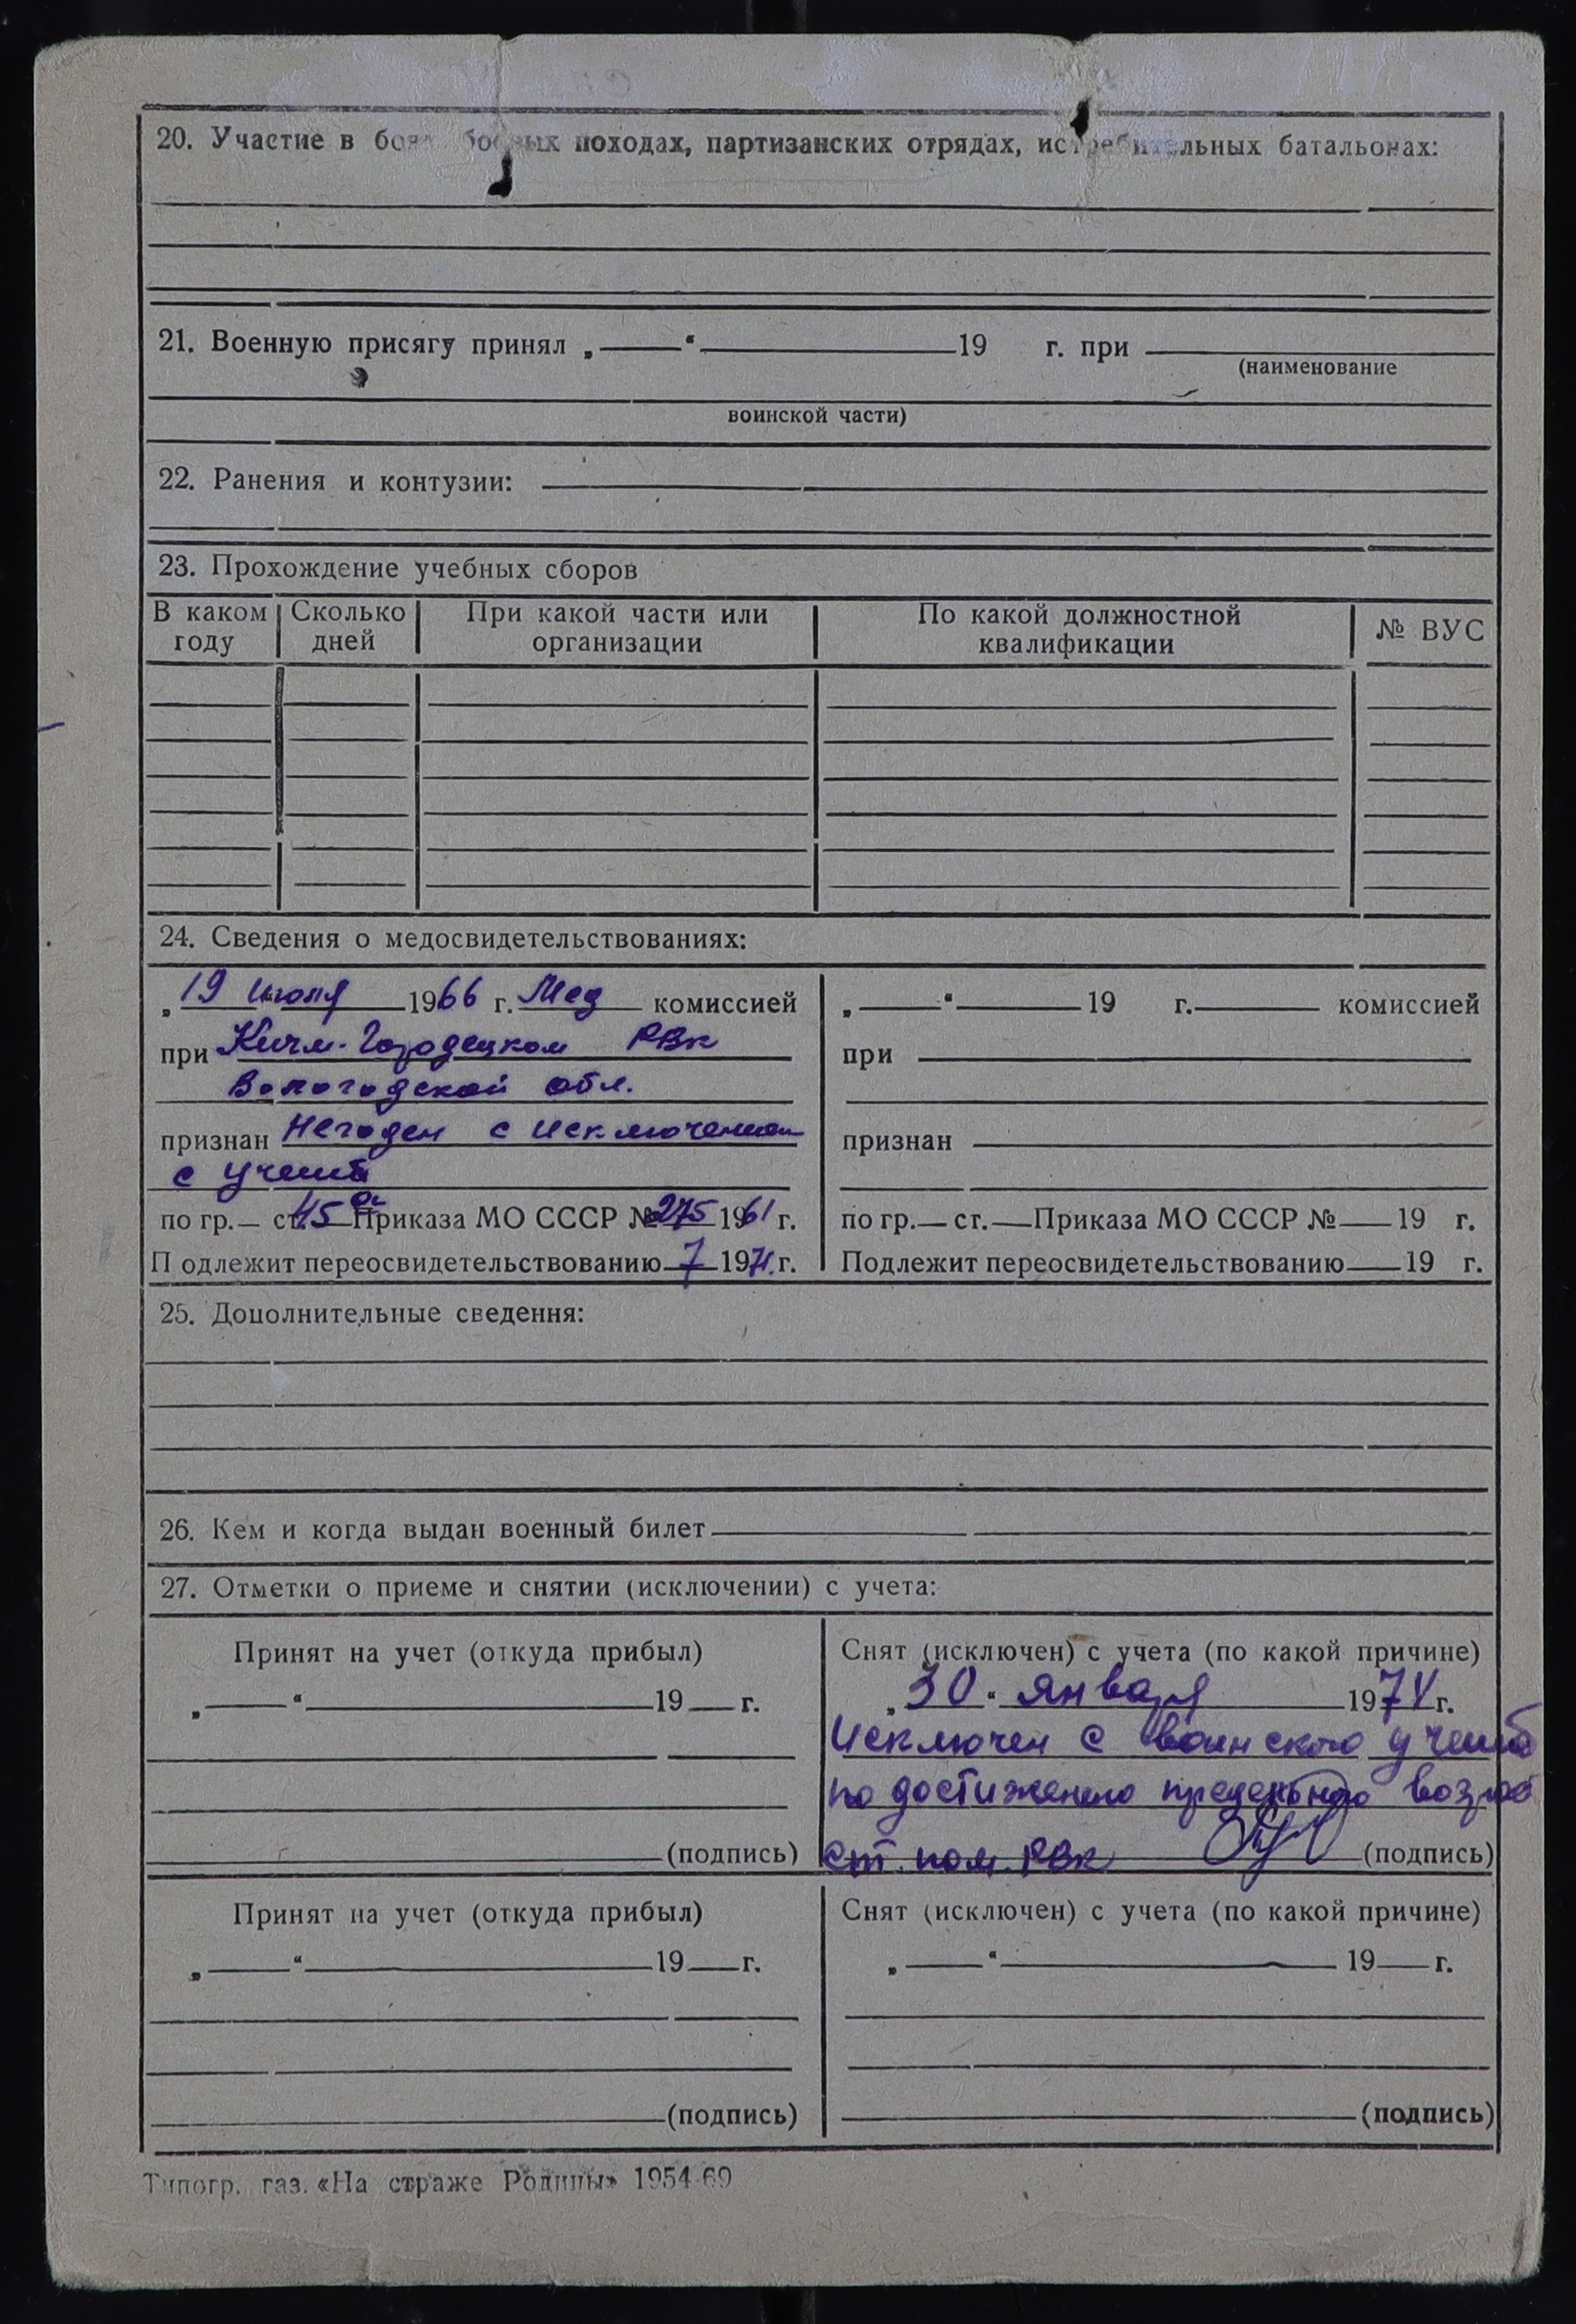 20. Участие в боях боевых походах, партизанских отрядах, истребительных батальонах:
21. Военную присягу принял „ “ 19 г. при
(наименование
воинской части)
22. Ранения и контузии:
23. Прохождение учебных сборов
В каком году Сколько дней При какой части или организации По какой должностной квалификации № ВУС
24. Сведения о медосвидетельствованиях:
„19 июля 1966 г. Мед комиссией
при Кичм-Городецком РВК
Вологодской обл.
признан Негоден с исключением
с учета
по гр. — ст. 45 Приказа МО СССР № 275 1961 г.
Подлежит переосвидетельствованию 7 1971 г.
„ “ 19 г. комиссией
при
признан
по гр. — ст. — Приказа МО СССР № 19 г.
Подлежит переосвидетельствованию 19 г.
25. Дополнительные сведения:
26. Кем и когда выдан военный билет
27. Отметки о приеме и снятии (исключении) с учета:
Принят на учет (откуда прибыл)
„ “ 19 г.
(подпись)
Снят (исключен) с учета (по какой причине)
„30“ января 1974 г.
Исключен с воинского учета
по достижению предельного возрас
ст. пом. РВК (подпись)
Принят на учет (откуда прибыл)
„ “ 19 г.
(подпись)
Снят (исключен) с учета (по какой причине)
„ “ 19 г.
(подпись)
Типогр. газ. «На страже Родины» 1954-69